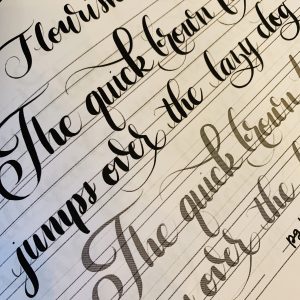 Flouris
The quick brown
jumps over the lazy dog
The quick brown
over the